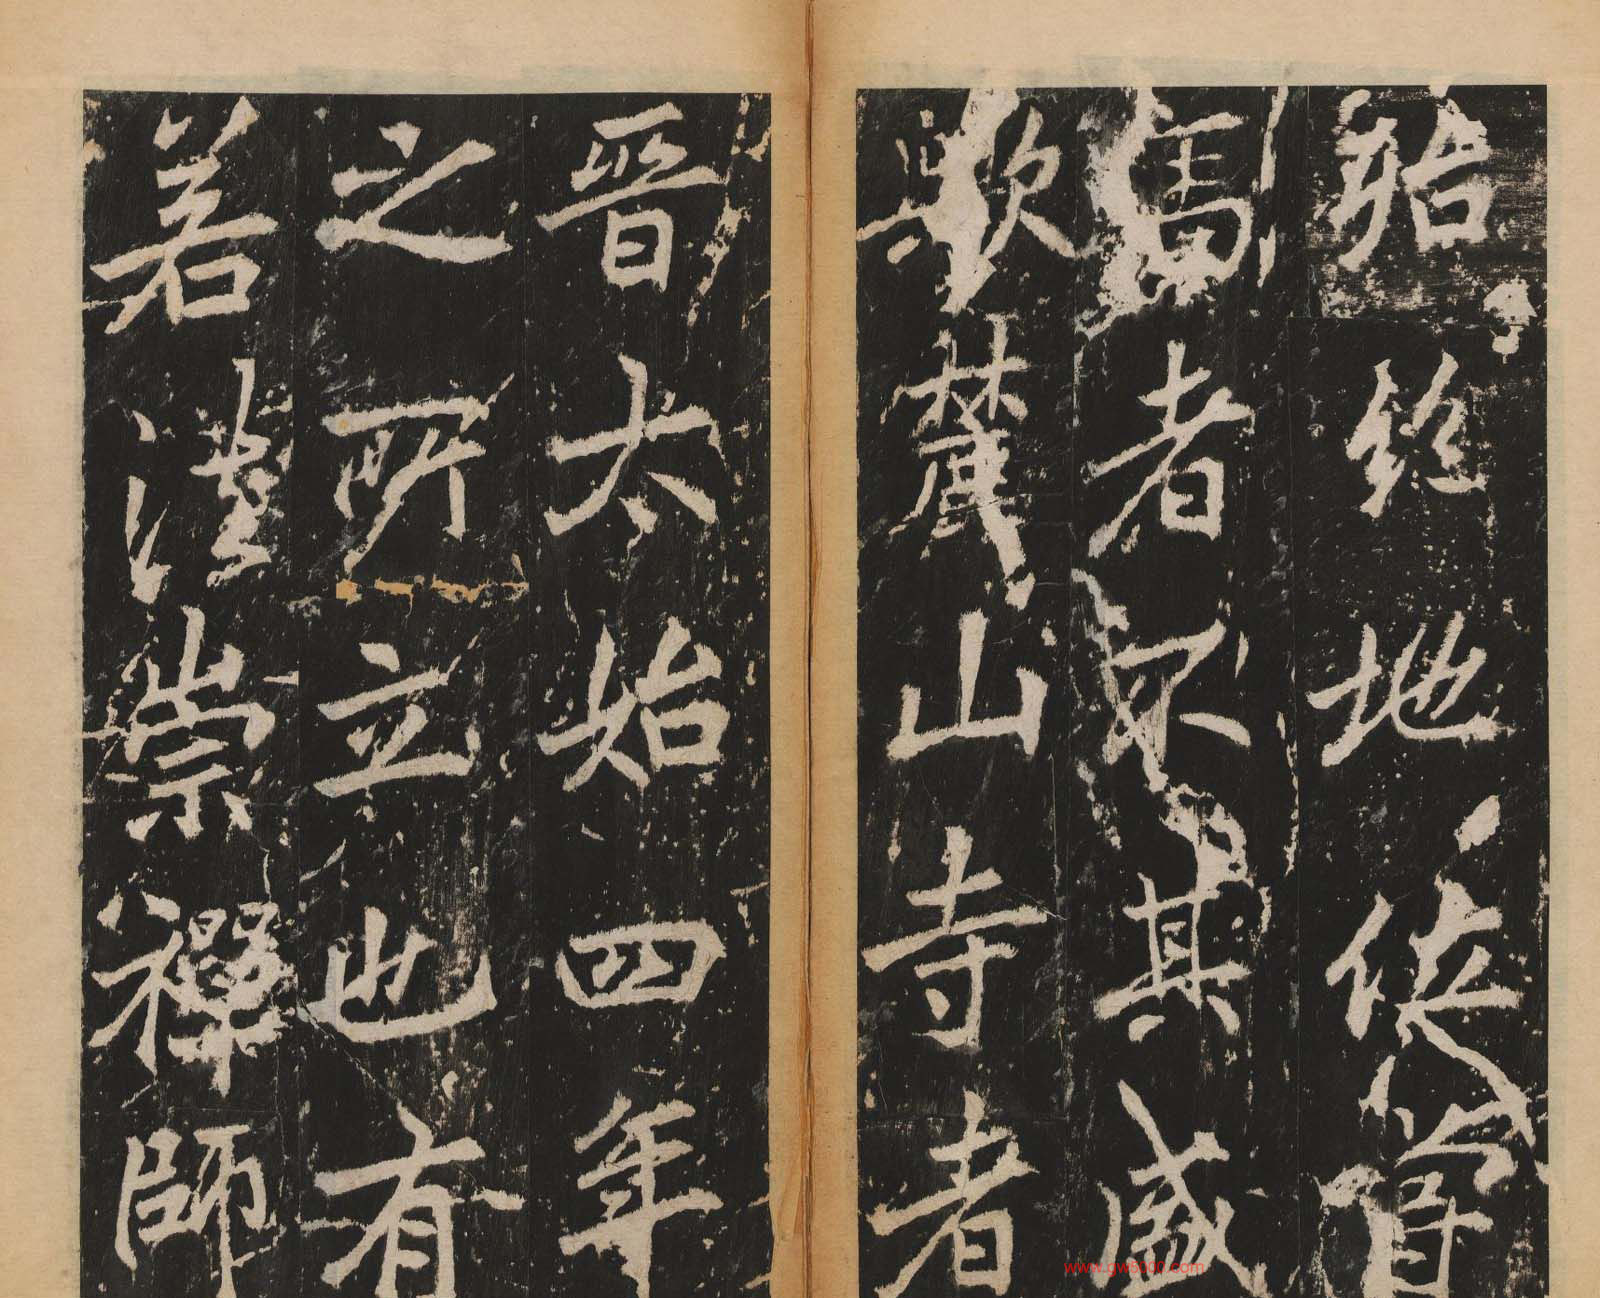 殆絕地位嘗
高者不其盛
歟麓山寺者
晉太始四年
之所立也有
若法崇禪師
www.gw8000.com